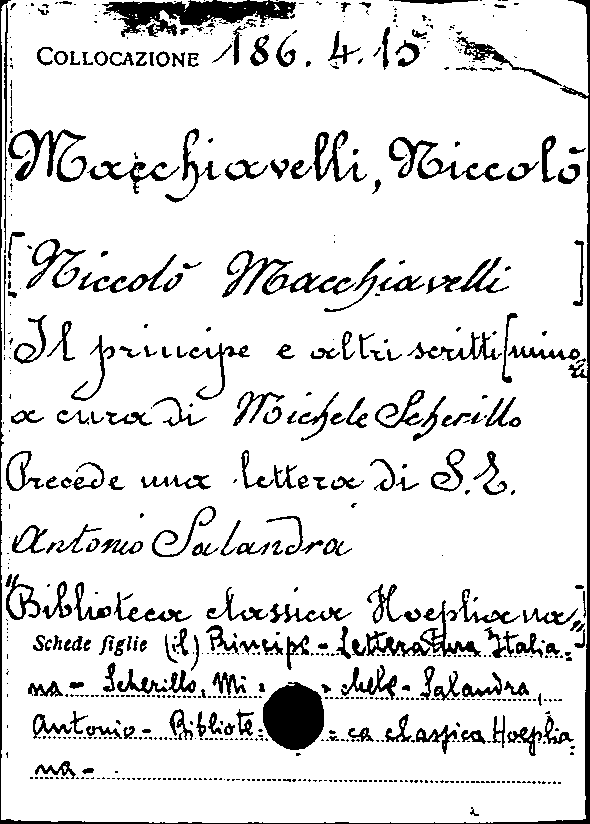 COLLOCAZIONE 186.4.15
Macchiavelli, Niccolò
[Niccolò Macchiavelli]
Il principe e altri scritti [minori
a cura di Michele Scherillo
Precede una lettera di S.E.
Antonio Salandra
"Biblioteca classica Hoepliana"]
Schede figlie (il) Principe - Letteratura Italia=
na - Scherillo, Mi= =chele - Salandra,
Antonio - Bibliote= =ca classica Hoeplia=
na -